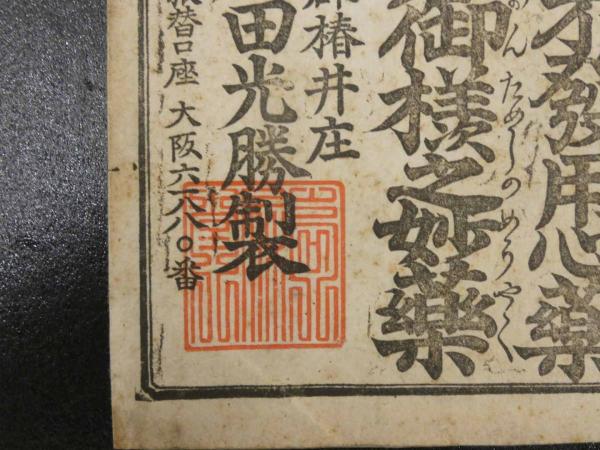 發用心藥
御様之妙藥
おんためしのめうやく
椿井庄
田光勝製
替口座 大阪六八八〇番